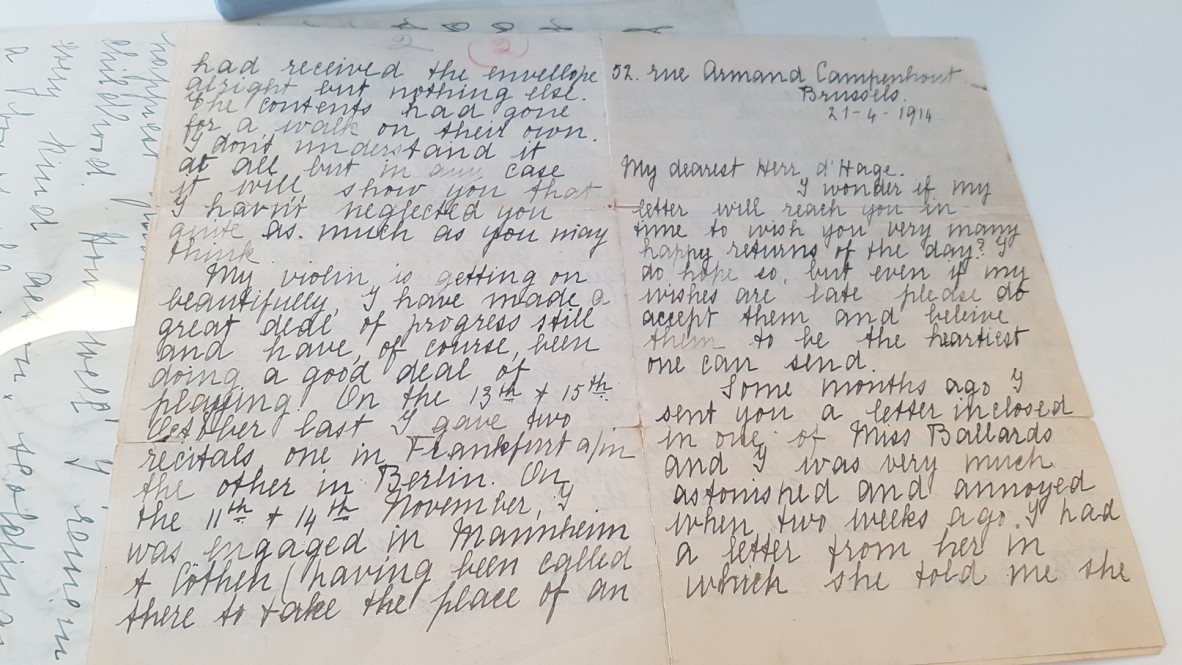 52. rue Armand Campenhout
Brussels.
21-4-1914
My dearest Herr d'Hage.
I wonder if my
letter will reach you in
time to wish you very many
happy returns of the day? I
do hope so, but even if my
wishes are late please do
accept them and beleive
them to be the heartiest
one can send.
Some months ago I
sent you a letter inclosed
in one of Miss Ballards
and I was very much
astonished and annoyed
when two weeks ago I had
a letter from her in
which she told me she
2 (2)
had received the envelope
alright but nothing else.
The contents had gone
for a walk on their own.
I dont understand it
at all but in any case
it will show you that
I havn't neglected you
quite as much as you may
think.
My violin is getting on
beautifully, I have made a
great deal of progress still
and have, of course, been
doing a good deal of
playing. On the 13th + 15th
October last I gave two
recitals one in Frankfurt a/m
the other in Berlin. On
the 11th + 14th November, I
was engaged in Mannheim
+ Cöthen (having been called
there to take the place of an